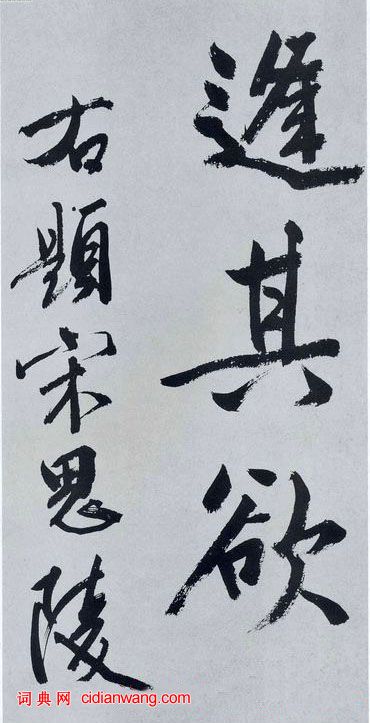 逢其欲
右題宋思陵
词典网 cidianwang.com